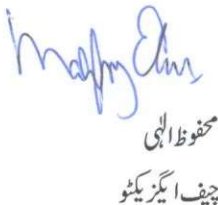 محفوظ الٰہی
چیف ایگزیکٹو